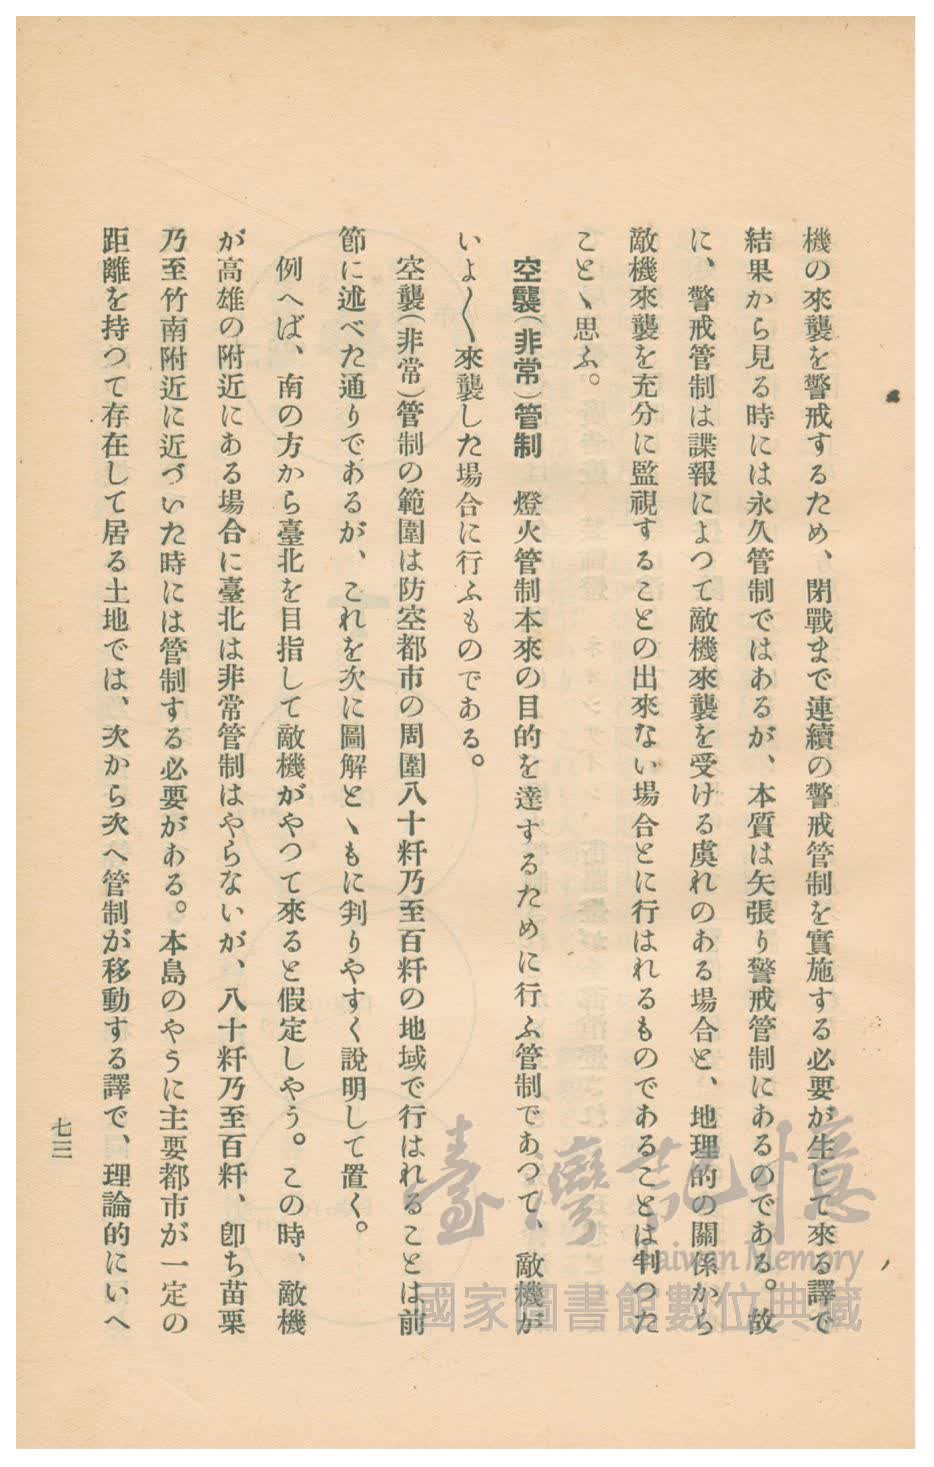 機の來襲を警戒するため、閉戰まで連續の警戒管制を實施する必要が生じて來る譯で
結果から見る時には永久管制ではあるが、本質は矢張り警戒管制にあるのである。故
に、警戒管制は諜報によつて敵機來襲を受ける虞れのある場合と、地理的の關係から
敵機來襲を充分に監視することの出來ない場合とに行はれるものであることは判つた
ことゝ思ふ。
空襲(非常)管制　燈火管制本來の目的を達するために行ふ管制であつて、敵機が
いよ〱來襲した場合に行ふものである。
空襲(非常)管制の範圍は防空都市の周圍八十粁乃至百粁の地域で行はれることは前
節に述べた通りであるが、これを次に圖解とゝもに判りやすく說明して置く。
例へば、南の方から臺北を目指して敵機がやつて來ると假定しやう。この時、敵機
が高雄の附近にある場合に臺北は非常管制はやらないが、八十粁乃至百粁、卽ち苗栗
乃至竹南附近に近づいた時には管制する必要がある。本島のやうに主要都市が一定の
距離を持つて存在して居る土地では、次から次へ管制が移動する譯で、理論的にいへ
七三
臺灣記憶
Taiwan Memory
國家圖書館數位典藏